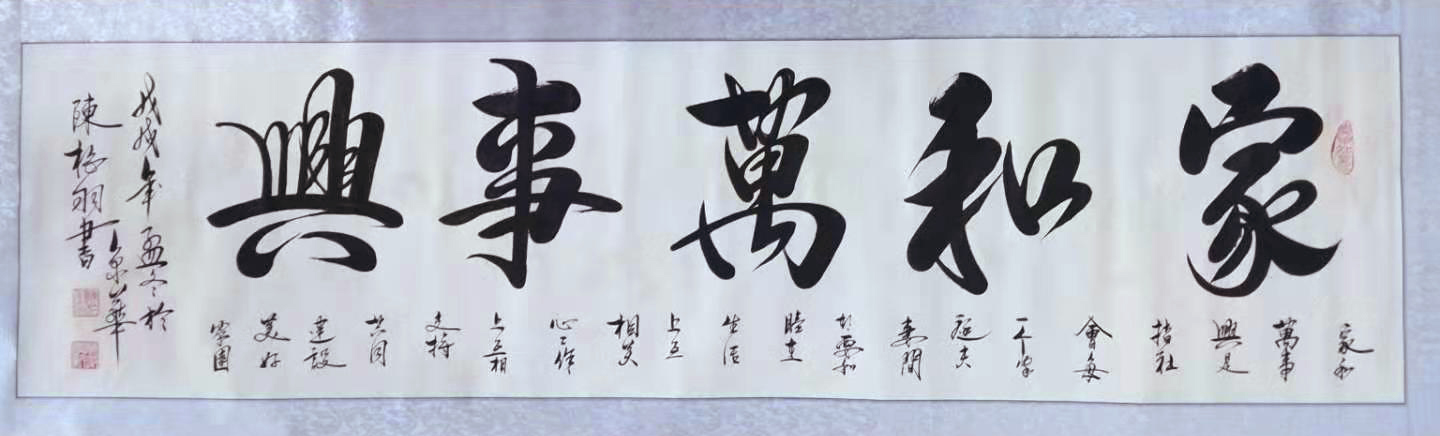 家和萬事興
家和
萬事
興是
指社
會每
一个家
庭夫
妻間
都要和
睦在
生活
上互
相关
心工作
上互相
支持
共同
建設
美好
家園
戊戌年孟冬於
京華
陳羽書